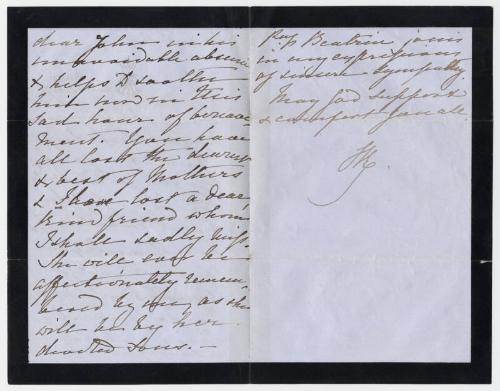 dear John in his
unavoidable absence
& helps to soothe
him now in this
sad hour of bereave
ment. You have
all lost the dearest
& best of Mothers
& I have lost a dear,
kind friend whom
I shall sadly miss.
She will ever be
affectionately remem
bered by me, as she
will be by her
devoted Sons. —
Beatrice joins
in my expressions
of sincere sympathy.
May God support
& comfort you all.